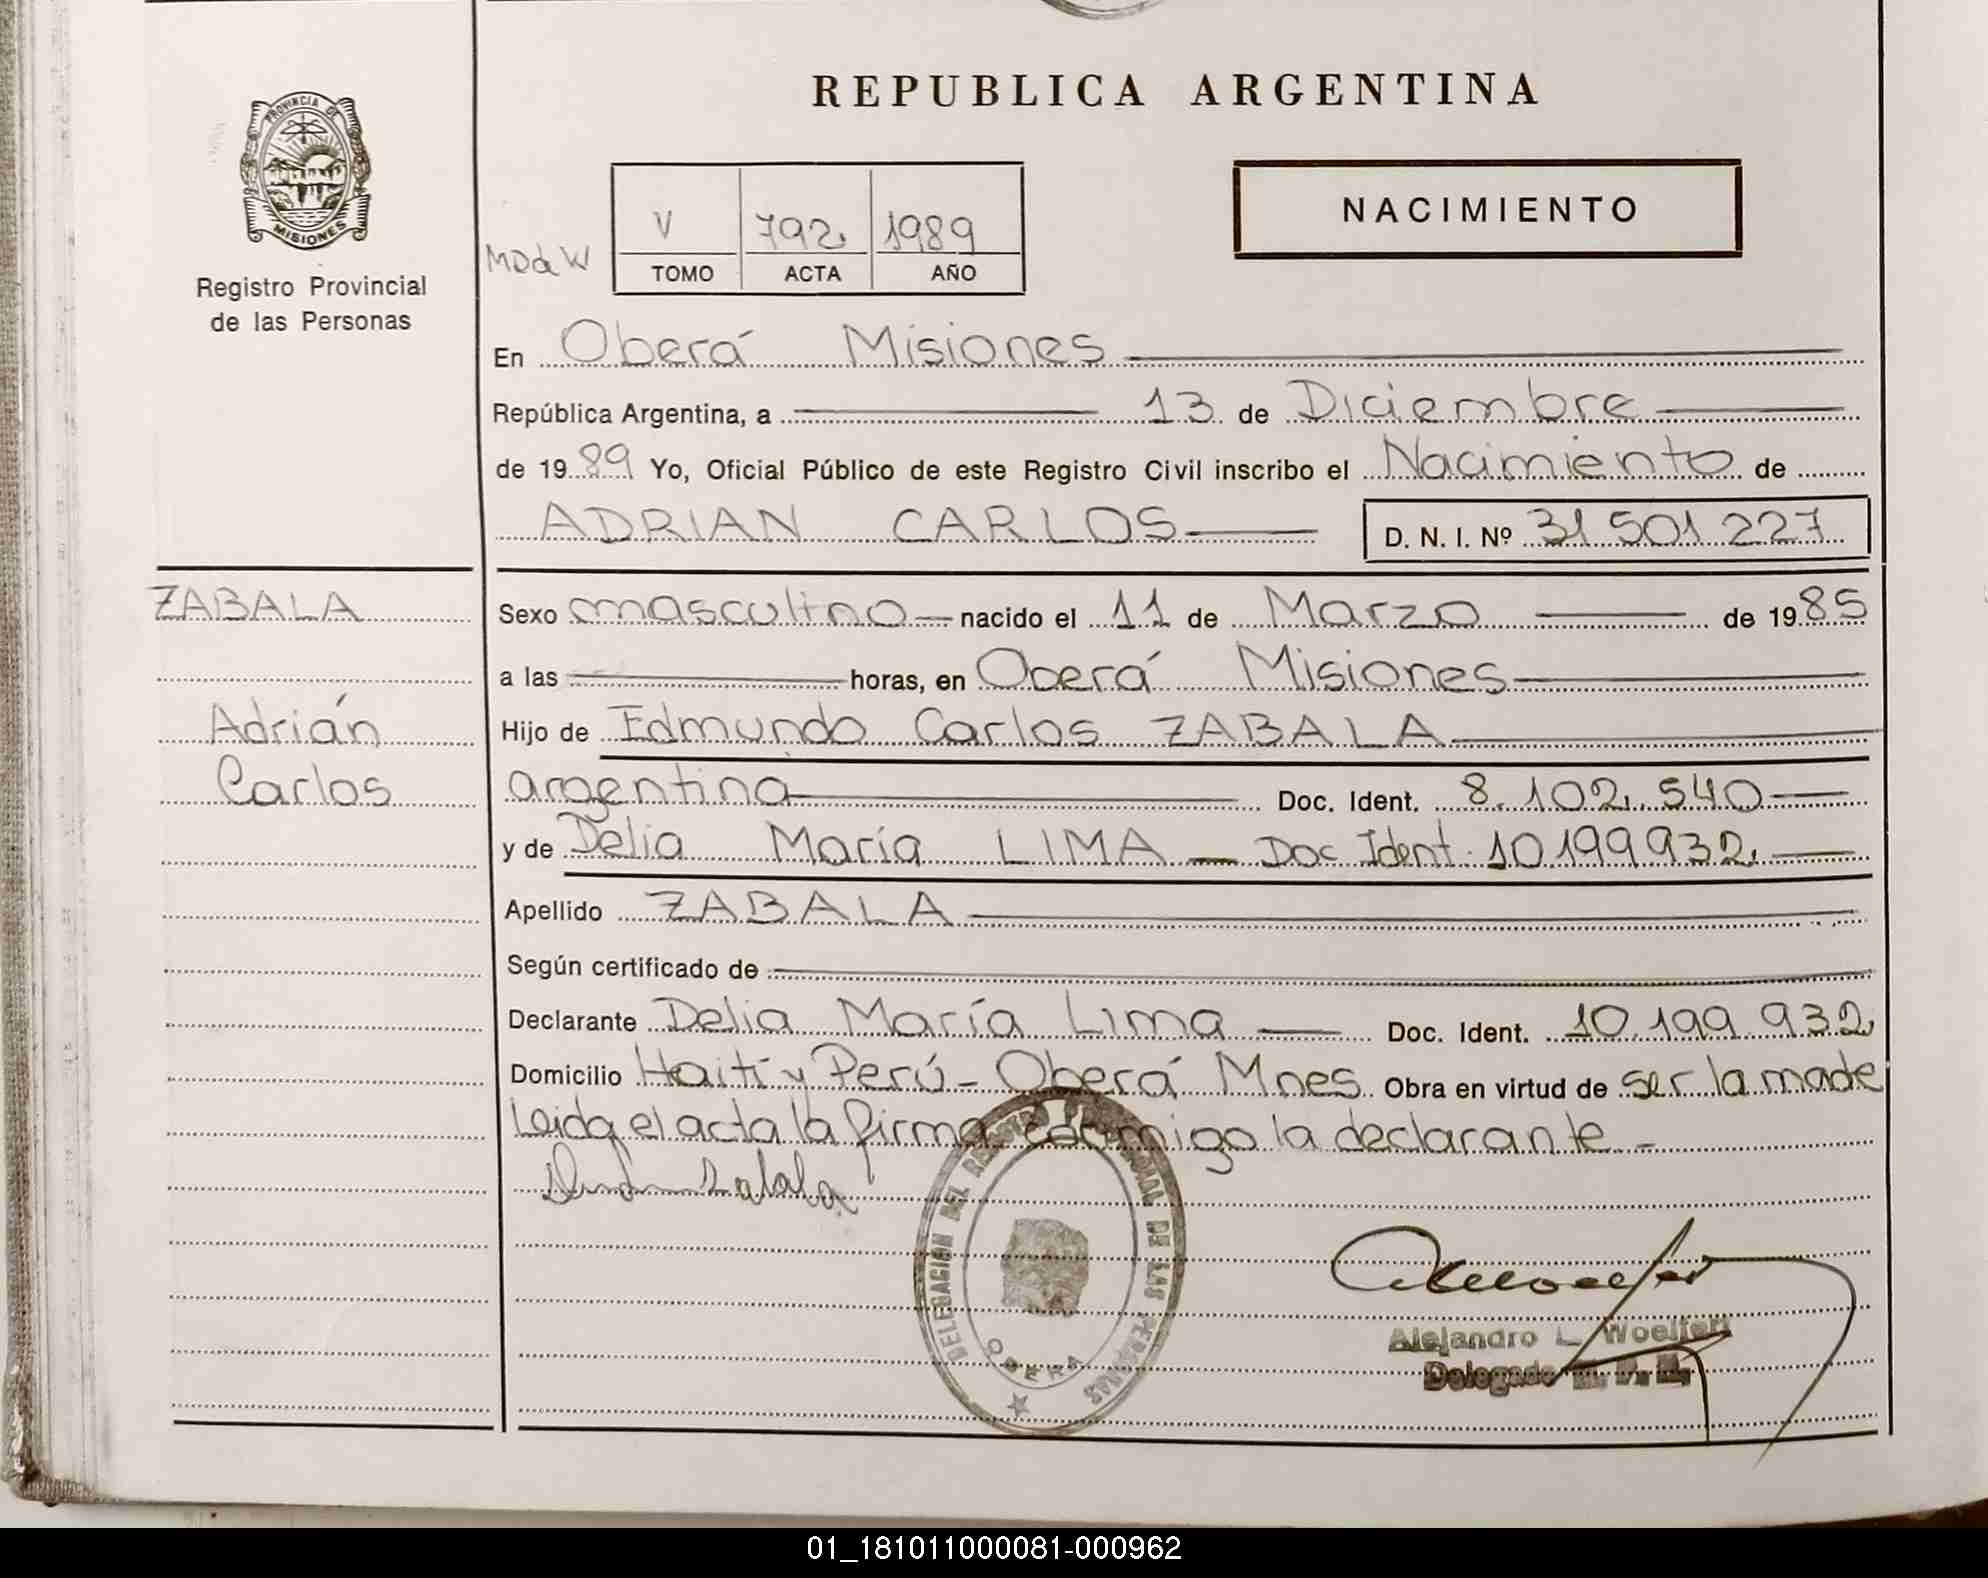 REPUBLICA ARGENTINA
PROVINCIA DE
MISIONES
Registro Provincial
de las Personas
V 792 1989
TOMO ACTA AÑO
NACIMIENTO
En Oberá Misiones
República Argentina, a 13 de Diciembre
de 1989 Yo, Oficial Público de este Registro Civil inscribo el Nacimiento de
ADRIAN CARLOS D. N. I. Nº 31 501 227
ZABALA
Adrián
Carlos
Sexo masculino nacido el 11 de Marzo de 1985
a las horas, en Oberá Misiones
Hijo de Edmundo Carlos ZABALA
argentina Doc. Ident. 8.102.540
y de Delia María LIMA - Doc Ident. 10199932
Apellido ZABALA
Según certificado de
Declarante Delia María Lima Doc. Ident. 10.199.932
Domicilio Haití y Perú - Oberá Mnes. Obra en virtud de ser la madre
Leida el acta la firma conmigo la declarante -
DELEGACION DEL DE LAS PERSONAS
OBERA
Alejandro L. Woelfert
Delegado R. P. P.
01_181011000081-000962